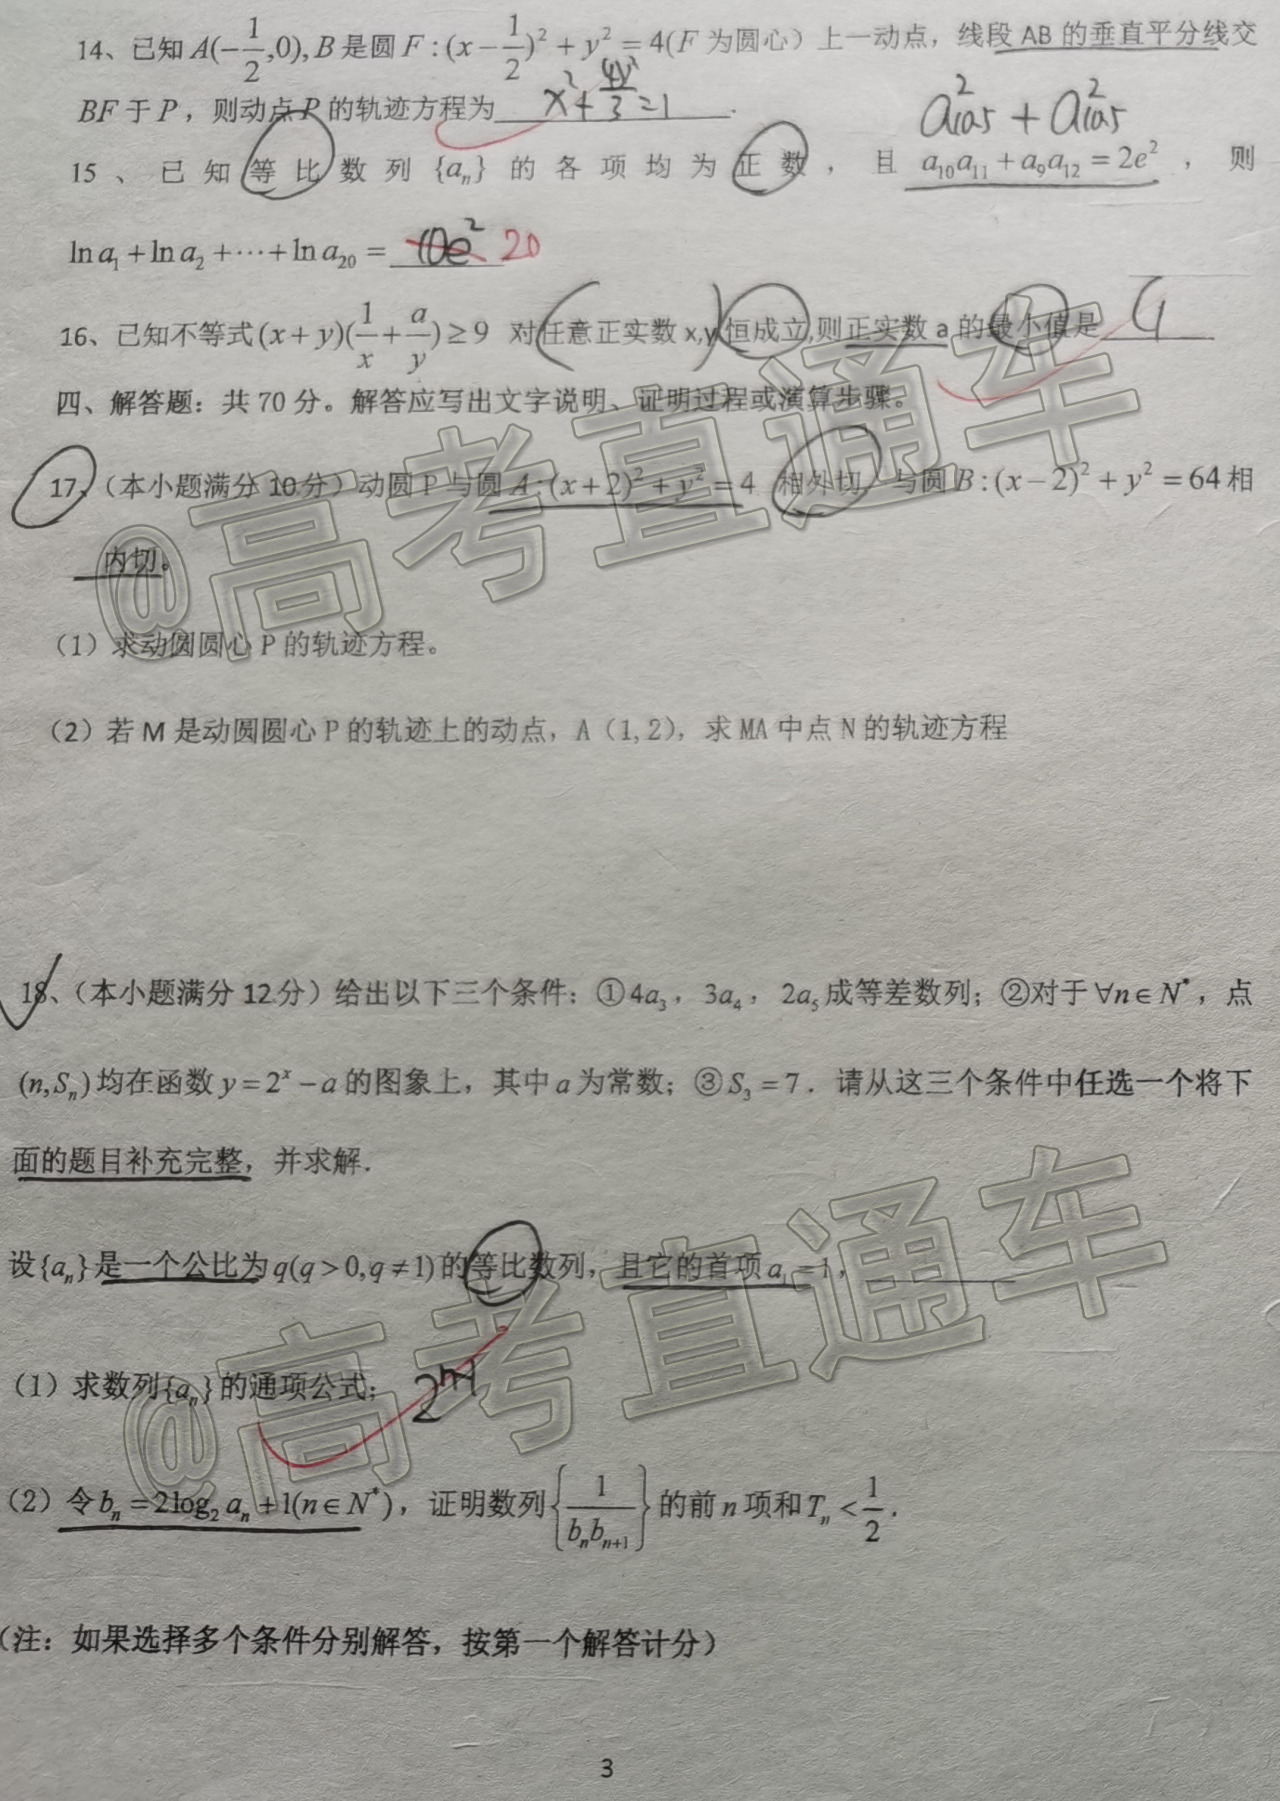 14、已知 A(-1/2,0), B 是圆 F:(x-1/2)²+y²=4(F 为圆心）上一动点，线段 AB 的垂直平分线交
BF 于 P，则动点 P 的轨迹方程为 x²+4y²/3=1 .
a²10.5 + a²10.5
15、已知等比数列{aₙ}的各项均为正数，且 a₁₀a₁₁+a₉a₁₂=2e²，则
ln a₁+ln a₂+⋯+ln a₂₀= 10e² 20
16、已知不等式(x+y)(1/x+a/y)≥9 对任意正实数 x,y 恒成立,则正实数 a 的最小值是 4
四、解答题：共 70 分。解答应写出文字说明、证明过程或演算步骤。
17、（本小题满分 10 分）动圆 P 与圆 A:(x+2)²+y²=4 相外切，与圆 B:(x-2)²+y²=64 相
内切。
（1）求动圆圆心 P 的轨迹方程。
（2）若 M 是动圆圆心 P 的轨迹上的动点，A（1,2），求 MA 中点 N 的轨迹方程
18、（本小题满分 12 分）给出以下三个条件：①4a₃，3a₄，2a₅成等差数列；②对于∀n∈N*，点
(n,Sₙ)均在函数 y=2ˣ-a 的图象上，其中 a 为常数；③S₃=7．请从这三个条件中任选一个将下
面的题目补充完整，并求解．
设{aₙ}是一个公比为 q(q>0,q≠1)的等比数列，且它的首项 a₁=1，
（1）求数列{aₙ}的通项公式； 2ⁿ⁻¹
（2）令 bₙ=2log₂aₙ+1(n∈N*)，证明数列{1/(bₙbₙ₊₁)}的前 n 项和 Tₙ<1/2．
（注：如果选择多个条件分别解答，按第一个解答计分）
3
@高考直通车
@高考直通车